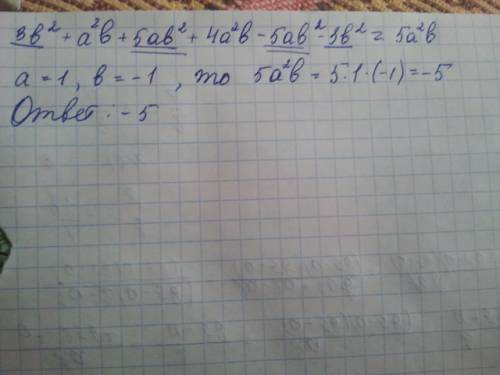 3в² + а²в + 5ав² + 4а²в - 5ав² - 3в² = 5а²в
а = 1, в = -1 , то 5а²в = 5·1·(-1) = -5
Ответ: -5